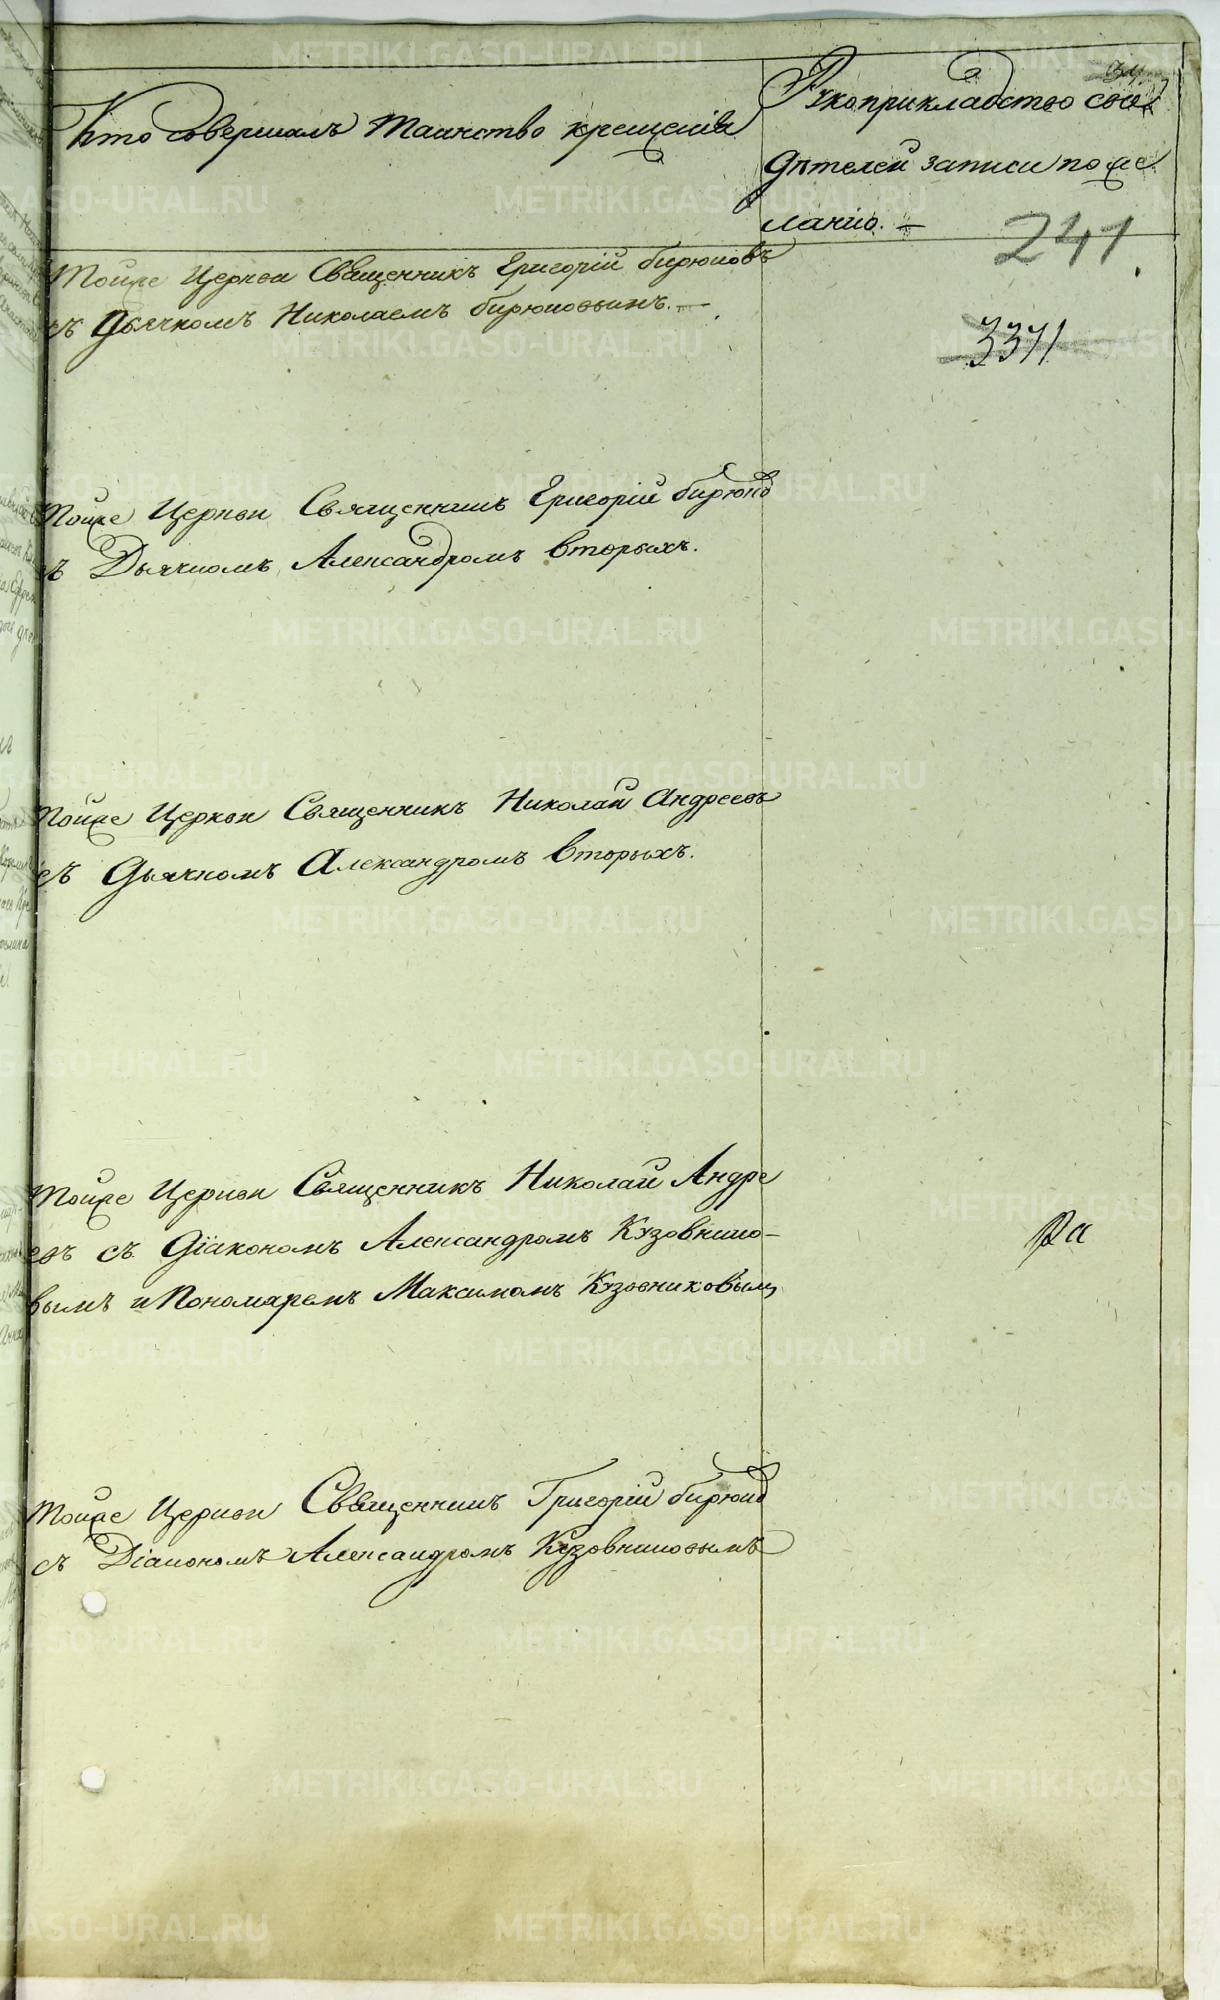 Кто совершалъ таинство крещенія
Рукоприкладство свид
ѣтелей записи по же
ланію. —
34
241.
3371
Тойже Церкви Священникъ Григорій Бирюковъ
съ Дьячкомъ Николаемъ Бирюковымъ. —
Тойже Церкви Священникъ Григорій Бирюков
съ Дьячкомъ Александромъ Вторыхъ.
Тойже Церкви Священникъ Николай Андреевъ
съ Дьячкомъ Александромъ Вторыхъ.
Тойже Церкви Священникъ Николай Андре
евъ съ Діакономъ Александромъ Кузовнико-
вымъ и Пономаремъ Максимомъ Кузовниковымъ
Ра
Тойже Церкви Священникъ Григорій Бирюков
съ Діакономъ Александромъ Кузовниковымъ
METRIKI.GASO-URAL.RU